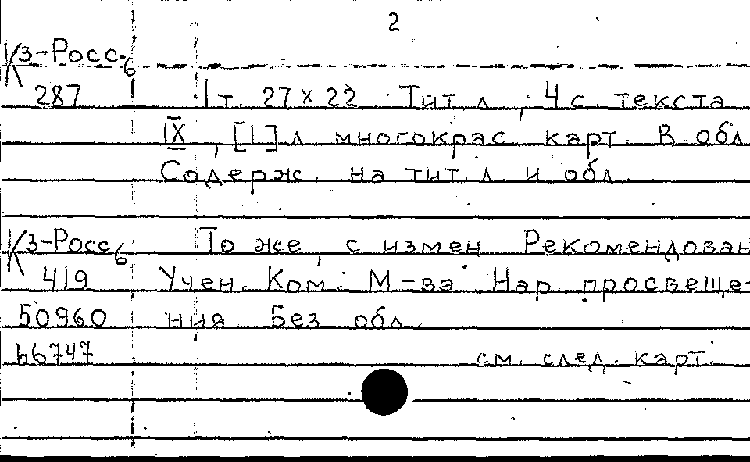 2
К3-Росс.
6
287 1т. 27×22. Тит. л., 4 с. текста
IX, [1] л. многокрас. карт. В обл.
Содерж. на тит. л. и обл.
К3-Росс 6 То же, с измен. Рекомендован
419 Учен. Ком. М-ва Нар. просвеще-
50960 ния. Без обл.
66747 см. след. карт.